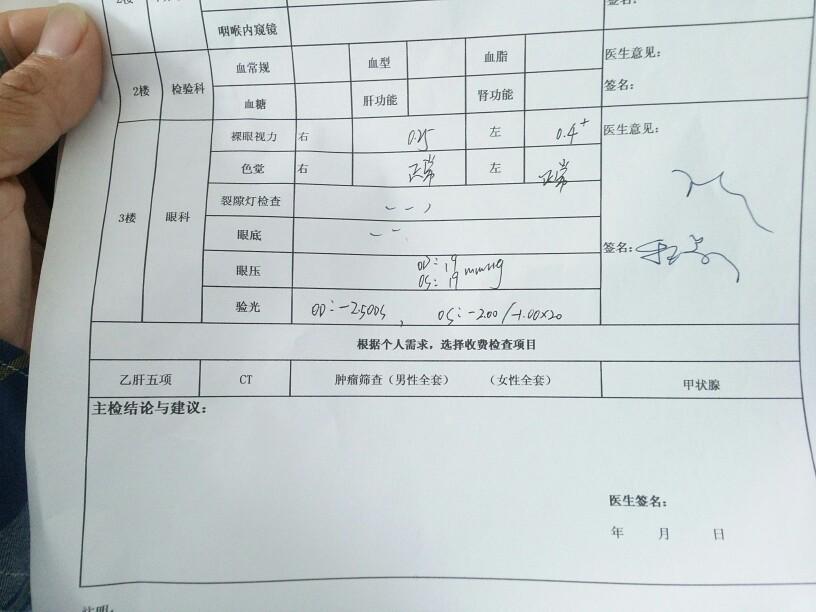 2楼
签名：
咽喉内窥镜
血常规 血型 血脂 医生意见：
2楼 检验科
血糖 肝功能 肾功能 签名：
裸眼视力 右 0.25 左 0.4+ 医生意见：
色觉 右 正常 左 正常
裂隙灯检查
3楼 眼科
眼底 签名：
眼压 OD：19 mmHg
OS：19
验光 OD：-2.50DS， OS：-2.00/-1.00×20
根据个人需求，选择收费检查项目
乙肝五项 CT 肿瘤筛查（男性全套） （女性全套） 甲状腺
主检结论与建议：
医生签名：
年 月 日
说明：